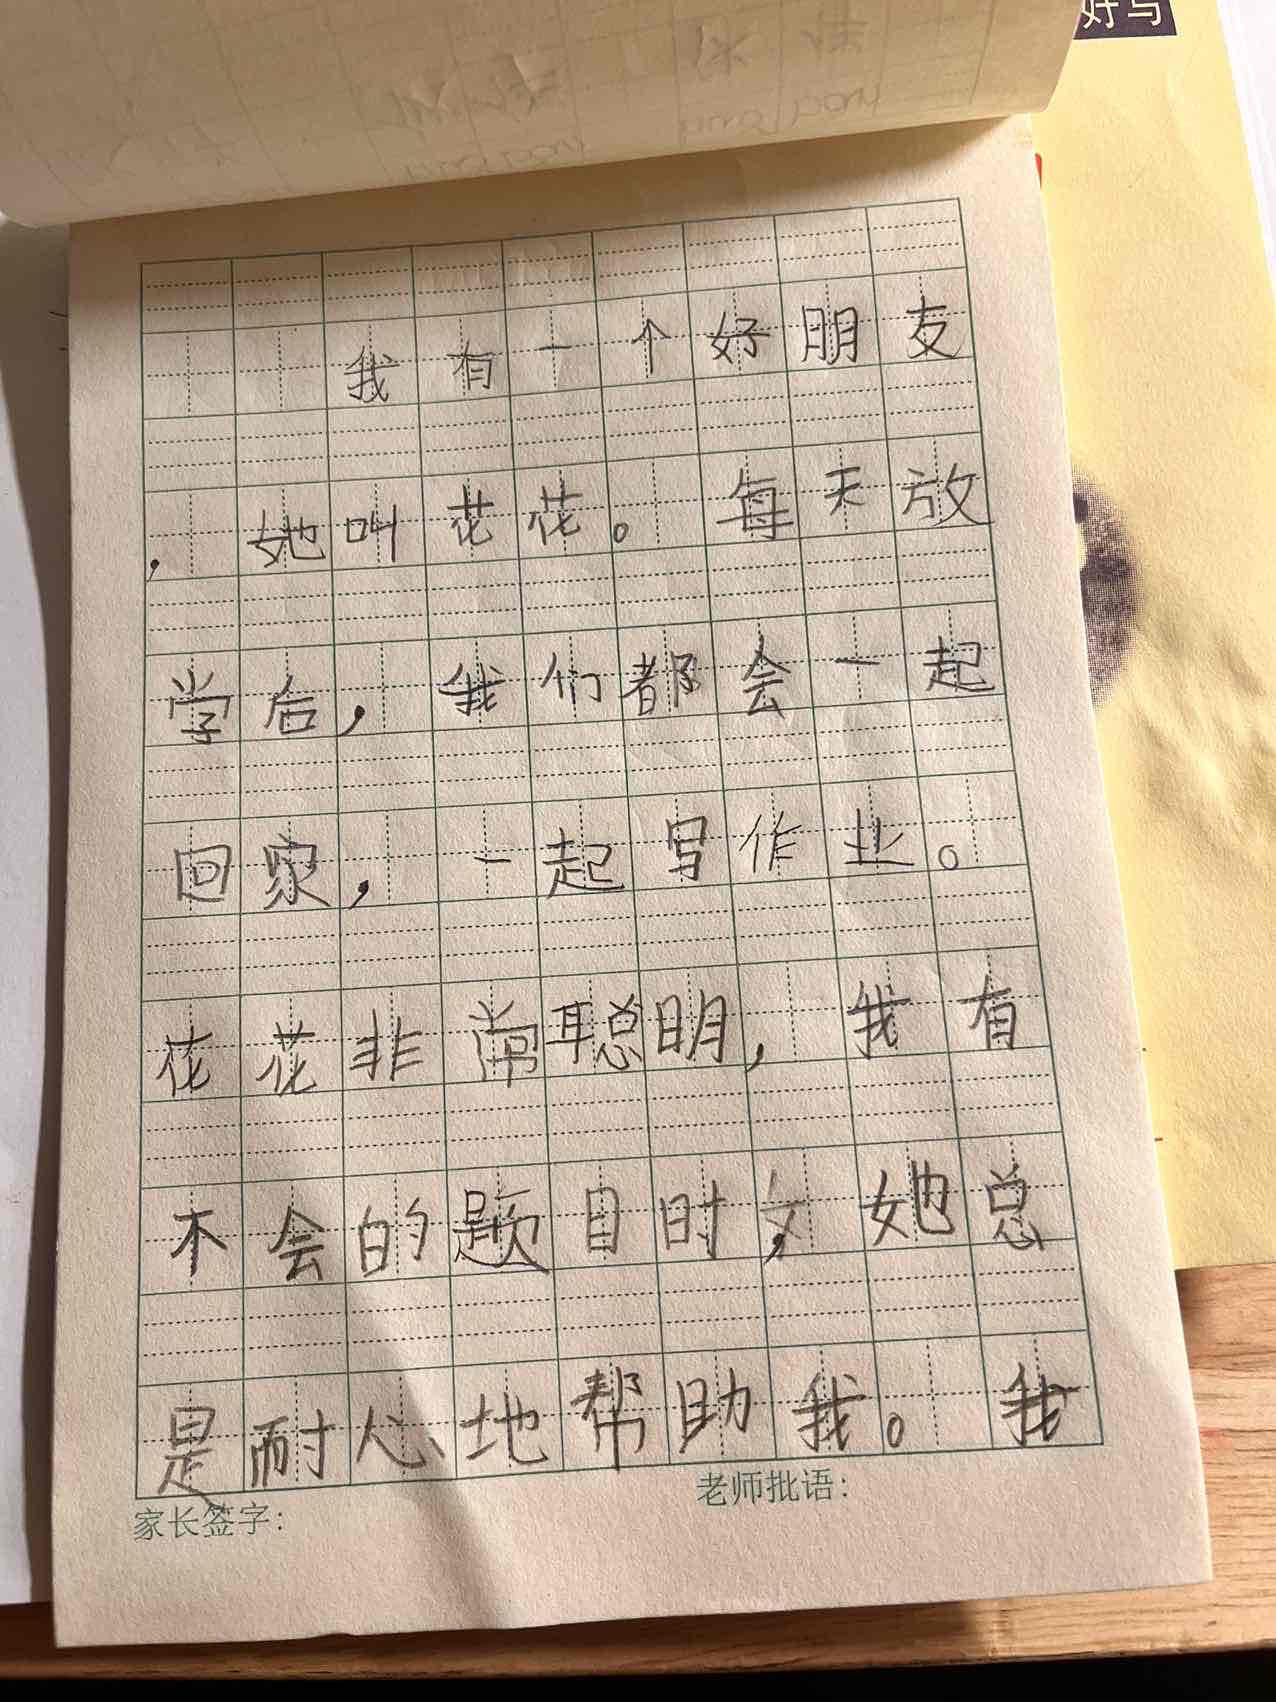 好写
我有一个好朋友
，她叫花花。每天放
学后，我们都会一起
回家，一起写作业。
花花非常聪明，我有
不会的题目时，她总
是耐心地帮助我。我
家长签字：
老师批语：